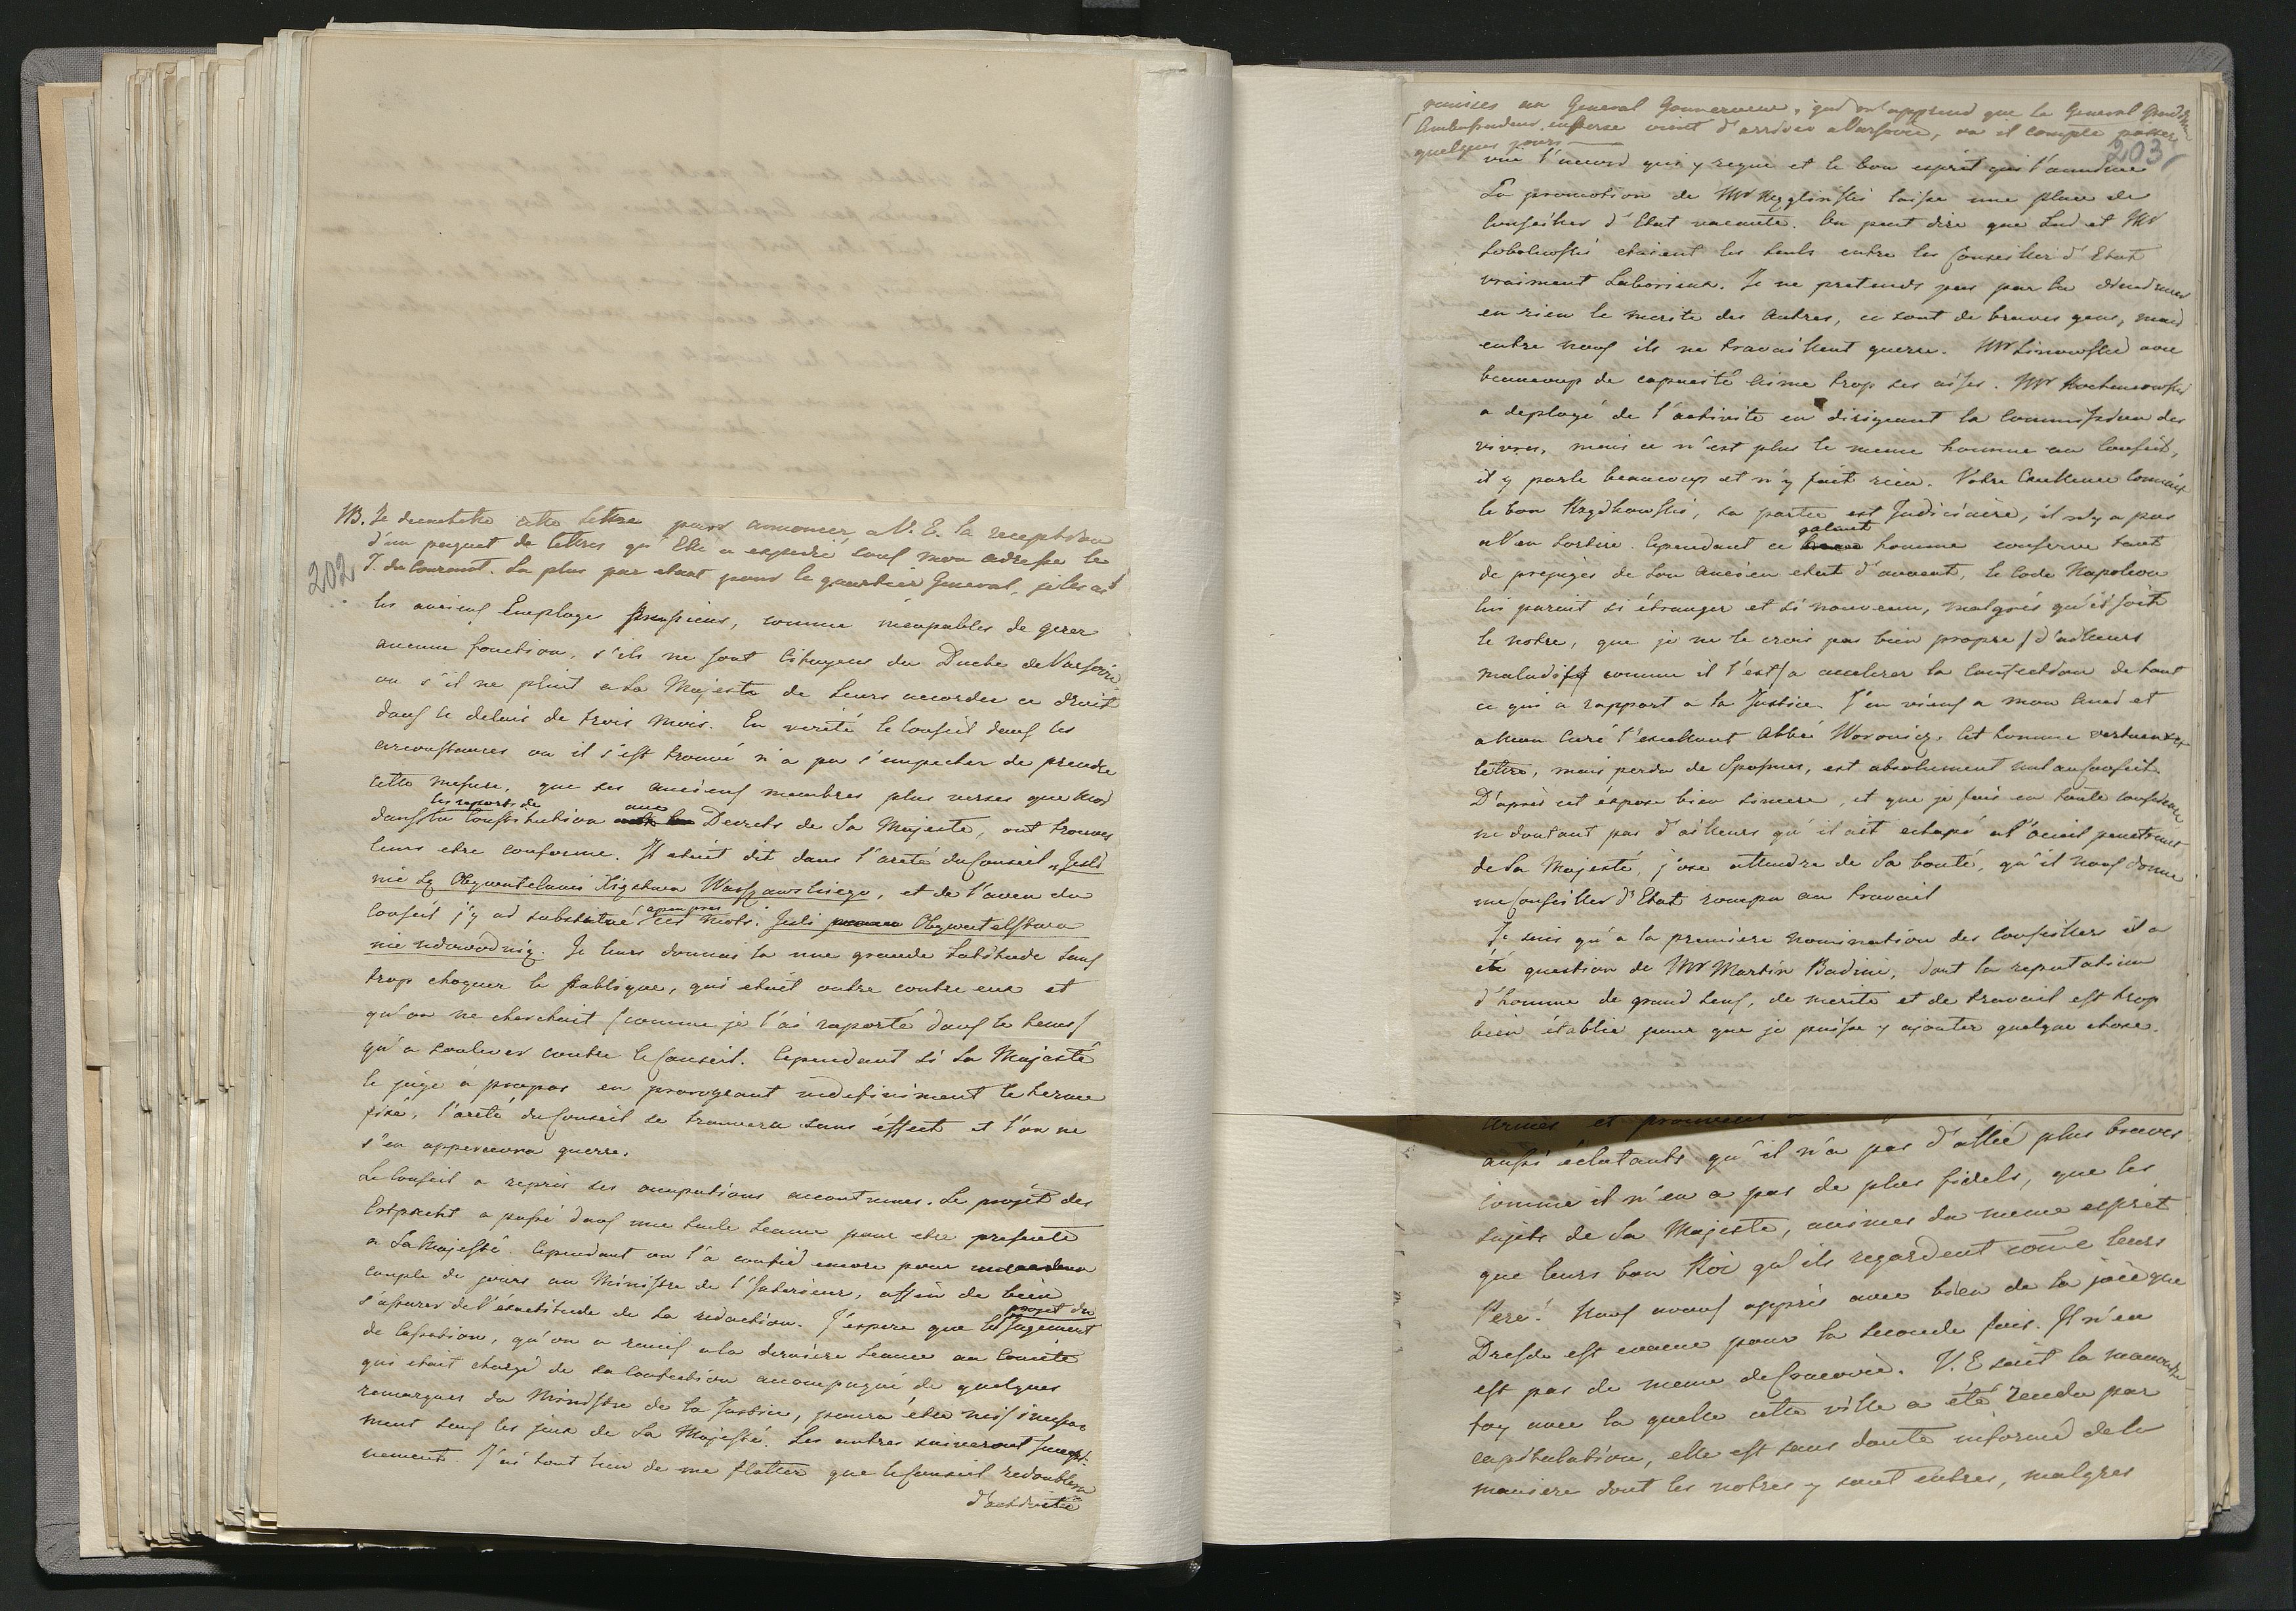 NB. Je decachette cette lettre pour annoncer a V. E. la reception
d'un paquet de lettres qu'Elle a expedié sous mon adresse le
7. du Courant. La plus par etant pour le quartier General, je les ai
202
les anciens Employe Prussiens, comme incapables de gerer
aucune fonction, s'ils ne sont Citoyens du Duché de Varsovie
ou s'il ne plait a Sa Majesté de leurs accorder ce droit
dans le delais de trois mois. En verité le Conseil dans les
circonstances ou il s'est trouvé n'a pu s'empecher de prendre
cette mesure, que ses anciens membres plus verses que moi
les raports de
dans la Constitution aux Decrets de Sa Majesté, ont trouvés
leurs etre conforme. Il etait dit dans l'areté du Conseil „Jesli
nie są Obywatelami Xięstwa Warszawskiego, et de l'aveu du
apeu près
Conseil j'y ai substitué ces mots: Jesli Obywatelstwa
nie udowodnią. Je leurs donnais la une grande latitude sans
trop choquer le publique, qui etait outre contre eux et
qu'on ne cherchait / comme je l'ai raporté dans le tems /
qu'a soulever contre le Conseil. Cependant si Sa Majesté
le juge à propos en prorogeant indefiniment le terme
fixé, l'areté du Conseil se trouvera sans éffect et l'on ne
s'en appercevra guerre.
Le Conseil a repris ses occupations accoutumes. Le projèt des
Estpacht a passé dans une seule seance pour etre presenté
a Sa Majesté. Cependant on l'a confié encore pour
couple de jours au Ministre de l'Interieur, affin de bien
s'assurer de l'éxactitude de la redaction. J'espere que le projet du Jugement
de Cassation, qu'on a remis a la derniere seance au Comité
qui etait chargé de sa confection accompagné de quelques
remarques du Ministre de la Justice, poura étre mis
sous les jeux de Sa Majesté. Les autres suiveront
J'ai tout lieu de me flatter que le Conseil redoublera
d'activité
remises au General Gouverneur, qui apprend que le General
Ambassadeur en Perse vient d'arriver a Varsovie, ou il compte passer
quelques jours
203
vue l'accord qui y regne et le bon esprit qui l'anime
La promotion de Mr Węgliński laisse une place de
Conseiller d'Etat vacante. On peut dire que Lui et Mr
Sobolewski etaient les seuls entre les Conseiller d'Etat
vraiment Laborieux. Je ne pretends pas par la diminuer
en rien le merite des Autres, ce sont de braves gens, mais
entre nous ils ne travaillent guerre. Mr Linowski avec
beaucoup de capacité aime trop ses aises. Mr Kochanowski
a deployé de l'activité en dirigeant la Commission des
vivres, mais ce n'est plus le meme homme au Conseil,
il y parle beaucoup et n'y fait rien. Votre Excellence connait
le bon sa partie est Judiciaire, il n'y a pas
a l'en sortire. Cependant ce galant homme conserve tant
de prejugés de son ancien etat d'avocat, le Code Napoleon
lui parait si étranger et si nouveau, malgrés qu'il soit
le notre, que je ne le crois pas bien propre / d'ailleurs
maladif comme il l'est / a accelerer la confection de tout
ce qui a rapport a la Justice. J'en viens a mon Ami et
a mon Curé l'excellent Abbé Woronicz. Cet homme vertueux
lettré, mais perdu de Spasmes, est absolument nul au Conseil.
D'après cet éxpose bien sincere, et que je fais en toute confidence
ne doutant pas d'ailleurs qu'il ait echapé a l'oeuil penetrant
de Sa Majesté, j'ose attendre de Sa bonté, qu'il nous donne
un Conseiller d'Etat rompu au travail
Je sais qu'a la premiere nomination des Conseillers il a
été question de Mr Martin Badeni, dont la reputation
d'homme de grand sens, de merite et de travail est trop
bien établie pour que je puisse y ajouter quelque chose.
armes et prouvent
aussi éclatants qu'il n'a pas d'allié plus braves
comme il n'en a pas de plus fidels, que les
sujets de Sa Majesté, animes du meme esprit
que leurs bon Roi qu'ils regardent come leurs
Pere! Nous avons appris avec bien de la joie que
Dresde est evacué pour la seconde fois. Il n'en
est pas de meme de Cracovie. V. E sait la mauvaise
foy avec la quelle cette ville a été rendu par
capitulation, elle est sans doute informé de la
maniere dont les notres y sont entres, malgres